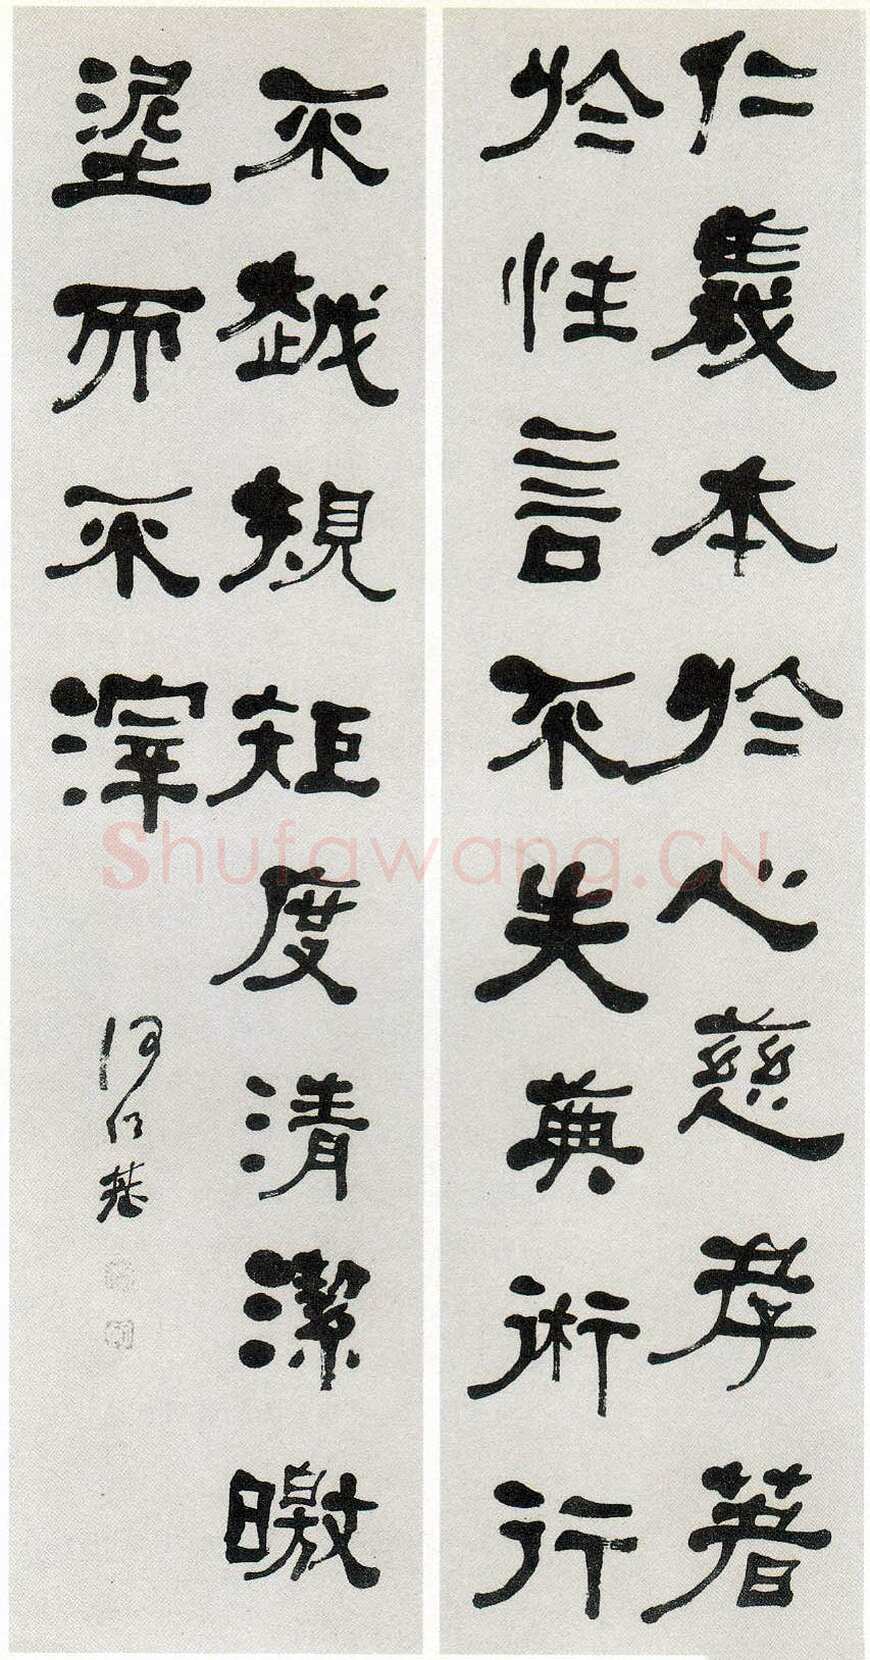 仁義本於心慈孝著
於性言不失典術行
不越規矩度清潔皦
埿而不滓
何維樸
Shufawang.CN